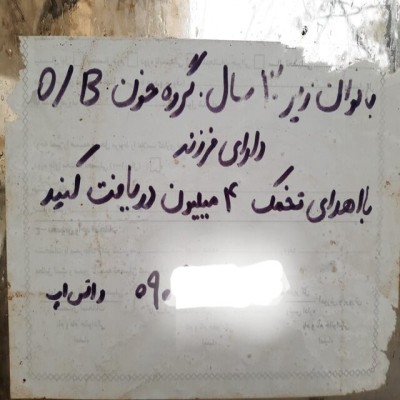 بانوان زیر ۳۰ سال. گروه خون O/B
دارای فرزند
بااهدای تخمک ۴ میلیون دریافت کنید
۰۹۰ واتس اپ